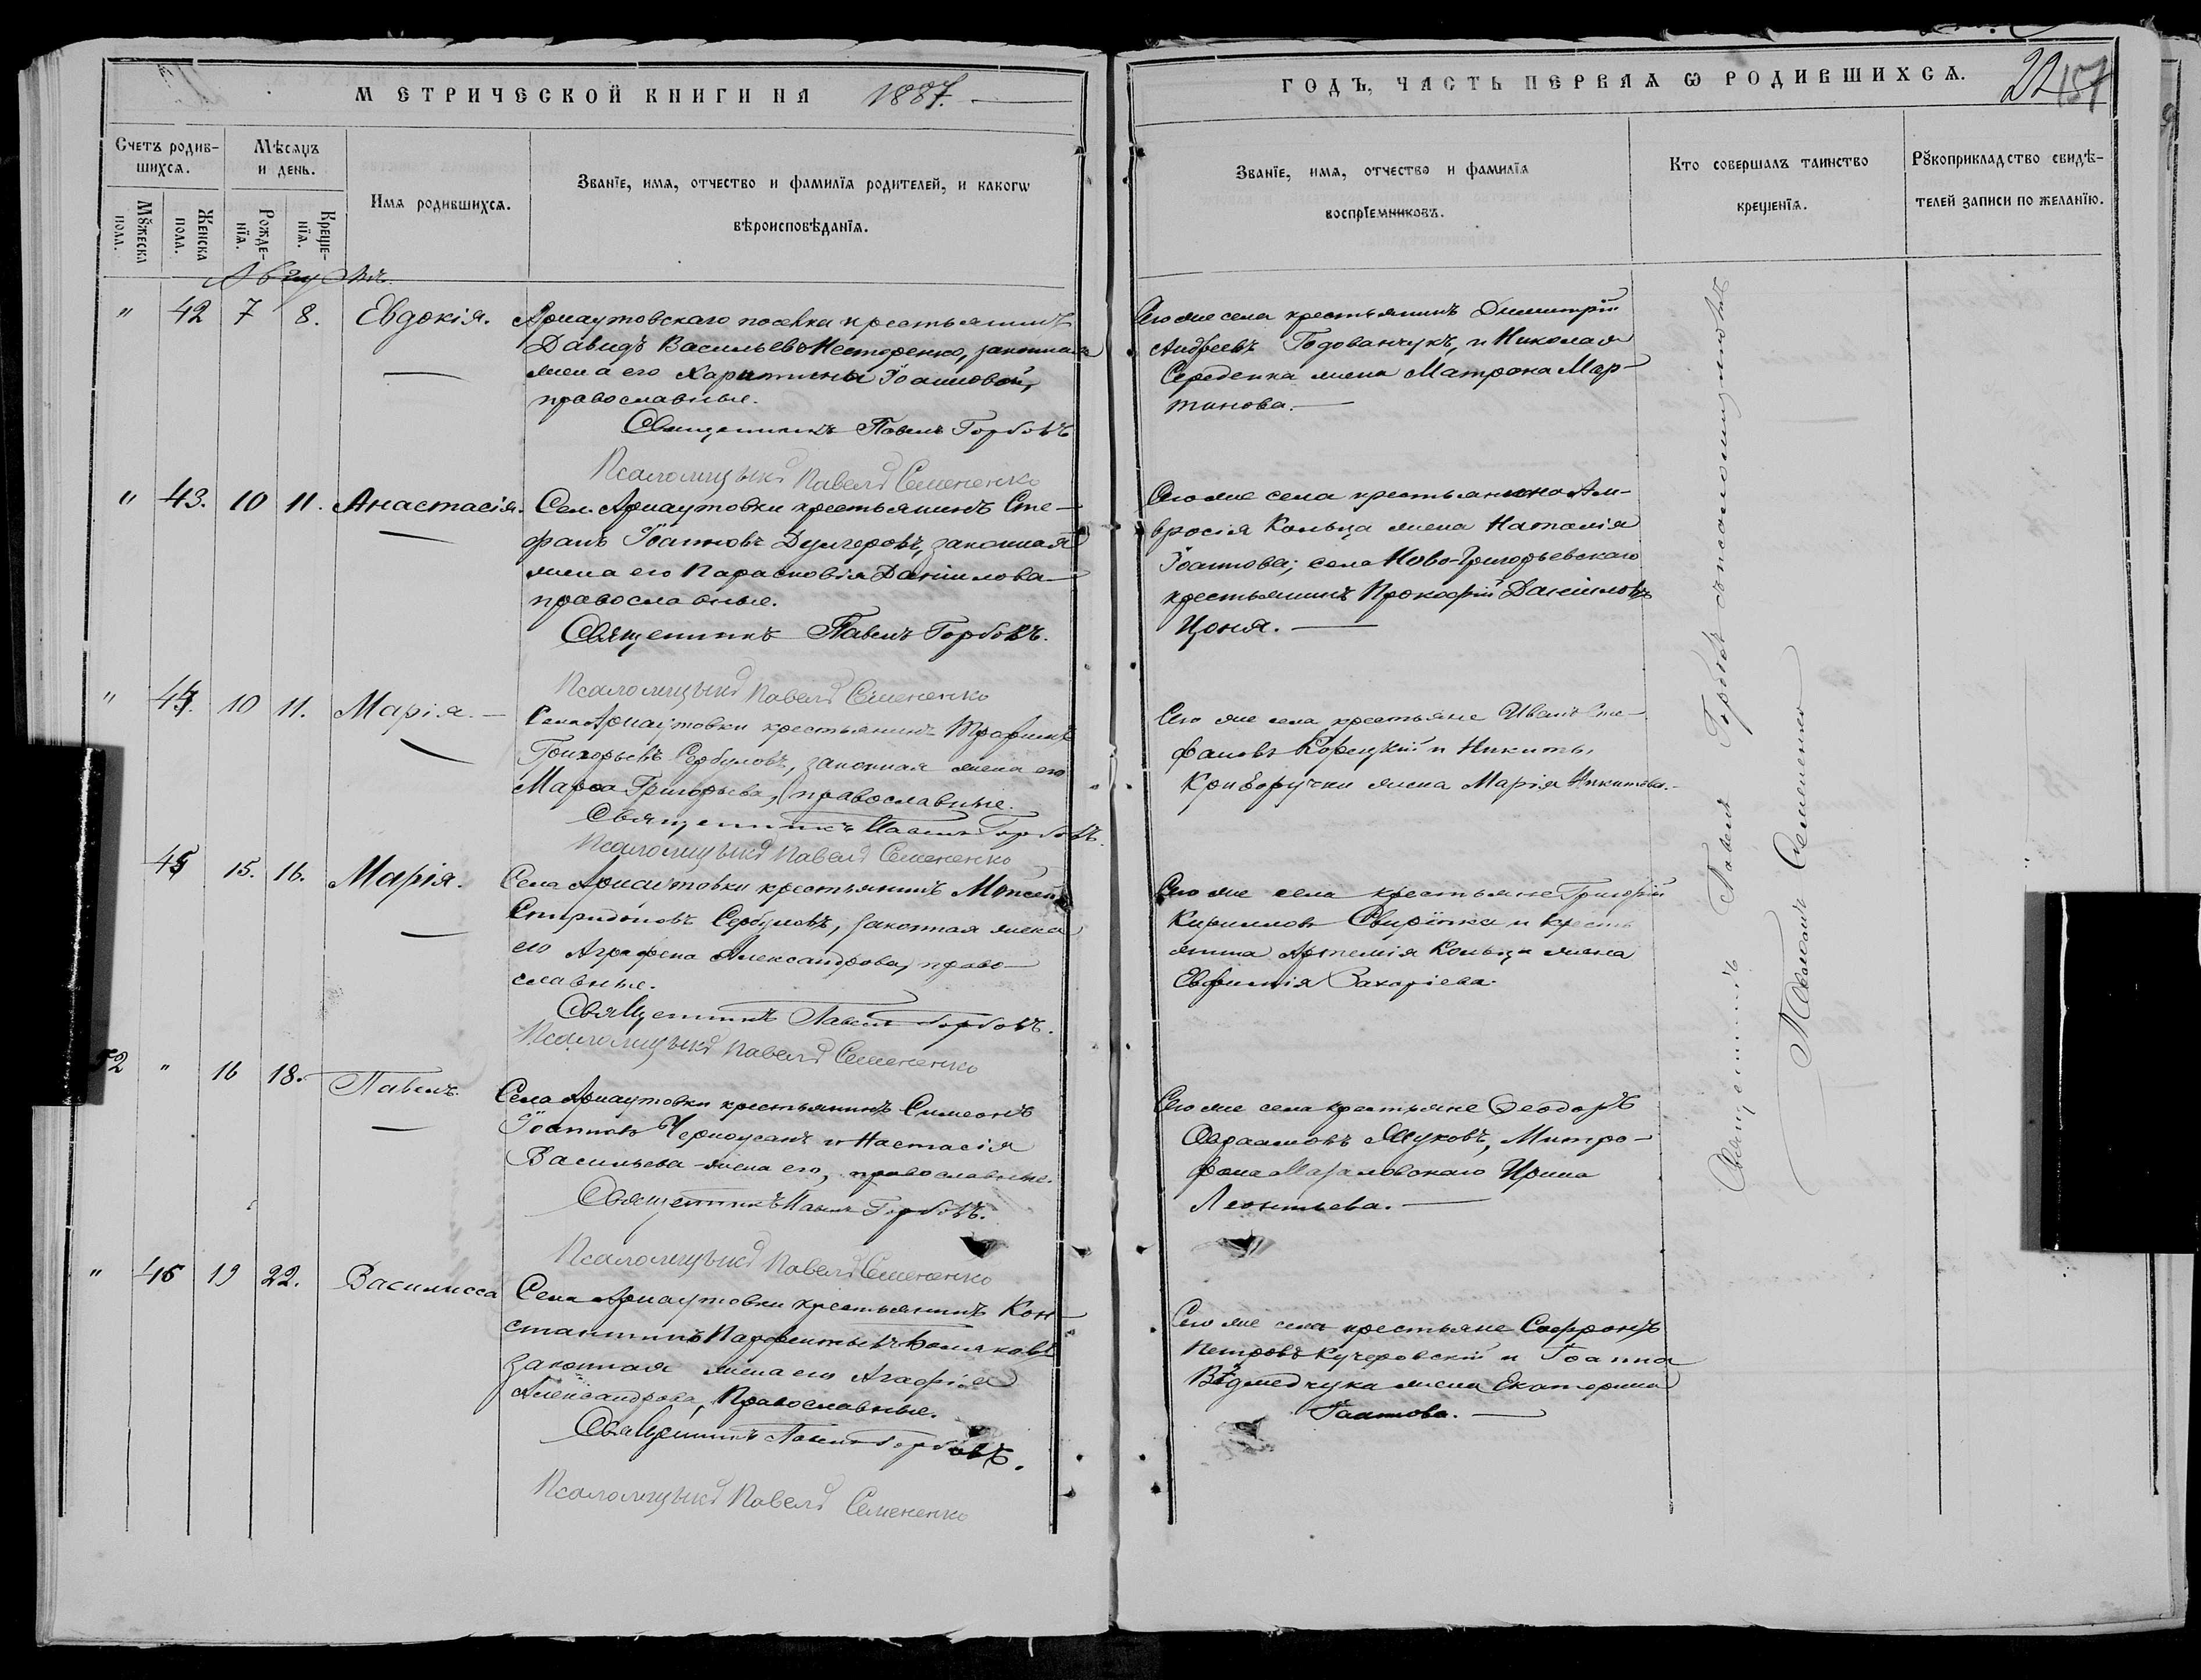 МЕТРИЧЕСКОЙ КНИГИ НА 1887.
ГОДЪ, ЧАСТЬ ПЕРВАЯ Ѡ РОДИВШИХСѦ.
22 157
Счетъ родив-
шихсѧ.
Мѣсѧцъ
и день.
Имѧ родившихсѧ.
Званїе, имѧ, отчество и фамилїѧ родителей, и какогѡ
вѣроисповѣданїѧ.
Мꙋжеска
пола.
Женска
пола.
Рожде-
нїѧ.
Креще-
нїѧ.
Званїе, имѧ, отчество и фамилїѧ
воспрїемниковъ.
Кто совершалъ таинство
крещенїѧ.
Рꙋкоприкладство свидѣ-
телей записи по желанїю.
Августъ
" 42 7 8. Евдокія. Арнаутовскаго поселка крестьянинъ
Давидъ Васильевъ Нестеренко, законная
жена его Харитина Іоаннова,
православные.
Священникъ Павелъ Горбовъ
Псаломщикъ Павелъ Семененко
Его же села крестьянинъ Димитрій
Андреевъ Годованчукъ, и Николая
Середенка жена Матрона Мар-
тинова.
" 43. 10 11. Анастасія. Сел. Арнаутовки крестьянинъ Сте-
фанъ Іоанновъ Дулгеровъ, законная
жена его Парасковія Даніилова
православные.
Священникъ Павелъ Горбовъ.
Псаломщикъ Павелъ Семененко
Его же села крестьянина Ам-
вросія Кольца жена Наталія
Іоаннова; села Ново-Григорьевскаго
крестьянинъ Прокофій Даніиловъ
Цоня.
" 44. 10 11. Марія. Села Арнаутовки крестьянинъ Трофимъ
Григорьевъ Сербуловъ, законная жена его
Марѳа Григорьева, православные.
Священникъ Павелъ Горбовъ.
Псаломщикъ Павелъ Семененко
Его же села крестьяне Иванъ Сте-
фановъ Корецкій и Никиты
Криворучки жена Марія Никитова.
45 15. 16. Марія. Села Арнаутовки крестьянинъ Моисей
Спиридоновъ Сербуловъ, законная жена
его Агрефена Александрова, право-
славные.
Священникъ Павелъ Горбовъ.
Псаломщикъ Павелъ Семененко
Его же села крестьяне Григорій
Кирилловъ и кресть
янина Артемія Кольца жена
Евфимія Захаріева.
52 " 16 18. Павелъ. Села Арнаутовки крестьянинъ Симеонъ
Іоанновъ Черноусанъ и Настасія
Васильева жена его, православные.
Священникъ Павелъ Горбовъ.
Псаломщикъ Павелъ Семененко
Его же села крестьяне Ѳеодоръ
Авраамовъ Жуковъ, Митро-
фана Ирина
Леонтьева.
" 46 19 22. Василисса Села Арнаутовки крестьянинъ Кон-
стантинъ Парфентьевъ
законная жена его Агафія
Александрова, Православные.
Священникъ Павелъ Горбовъ.
Псаломщикъ Павелъ Семененко
Его же села крестьяне Софронъ
Петровъ Кучеровскій и Іоанна
Ведмедчука жена Екатерина
Іоаннова.
Священникъ Павелъ Горбовъ съ псаломщикомъ
Павломъ Семененко